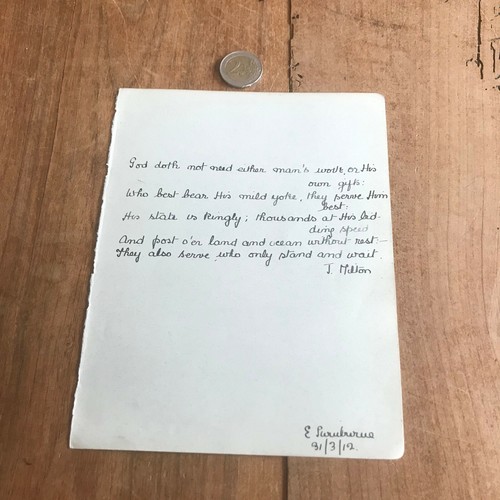 God doth not need either man's work, or His
own gifts:
Who best bear His mild yoke, they serve Him
best:
His state is kingly; thousands at His bid-
ding speed
And post o'er land and ocean without rest:-
They also serve who only stand and wait.
J. Milton
E
31/3/12.